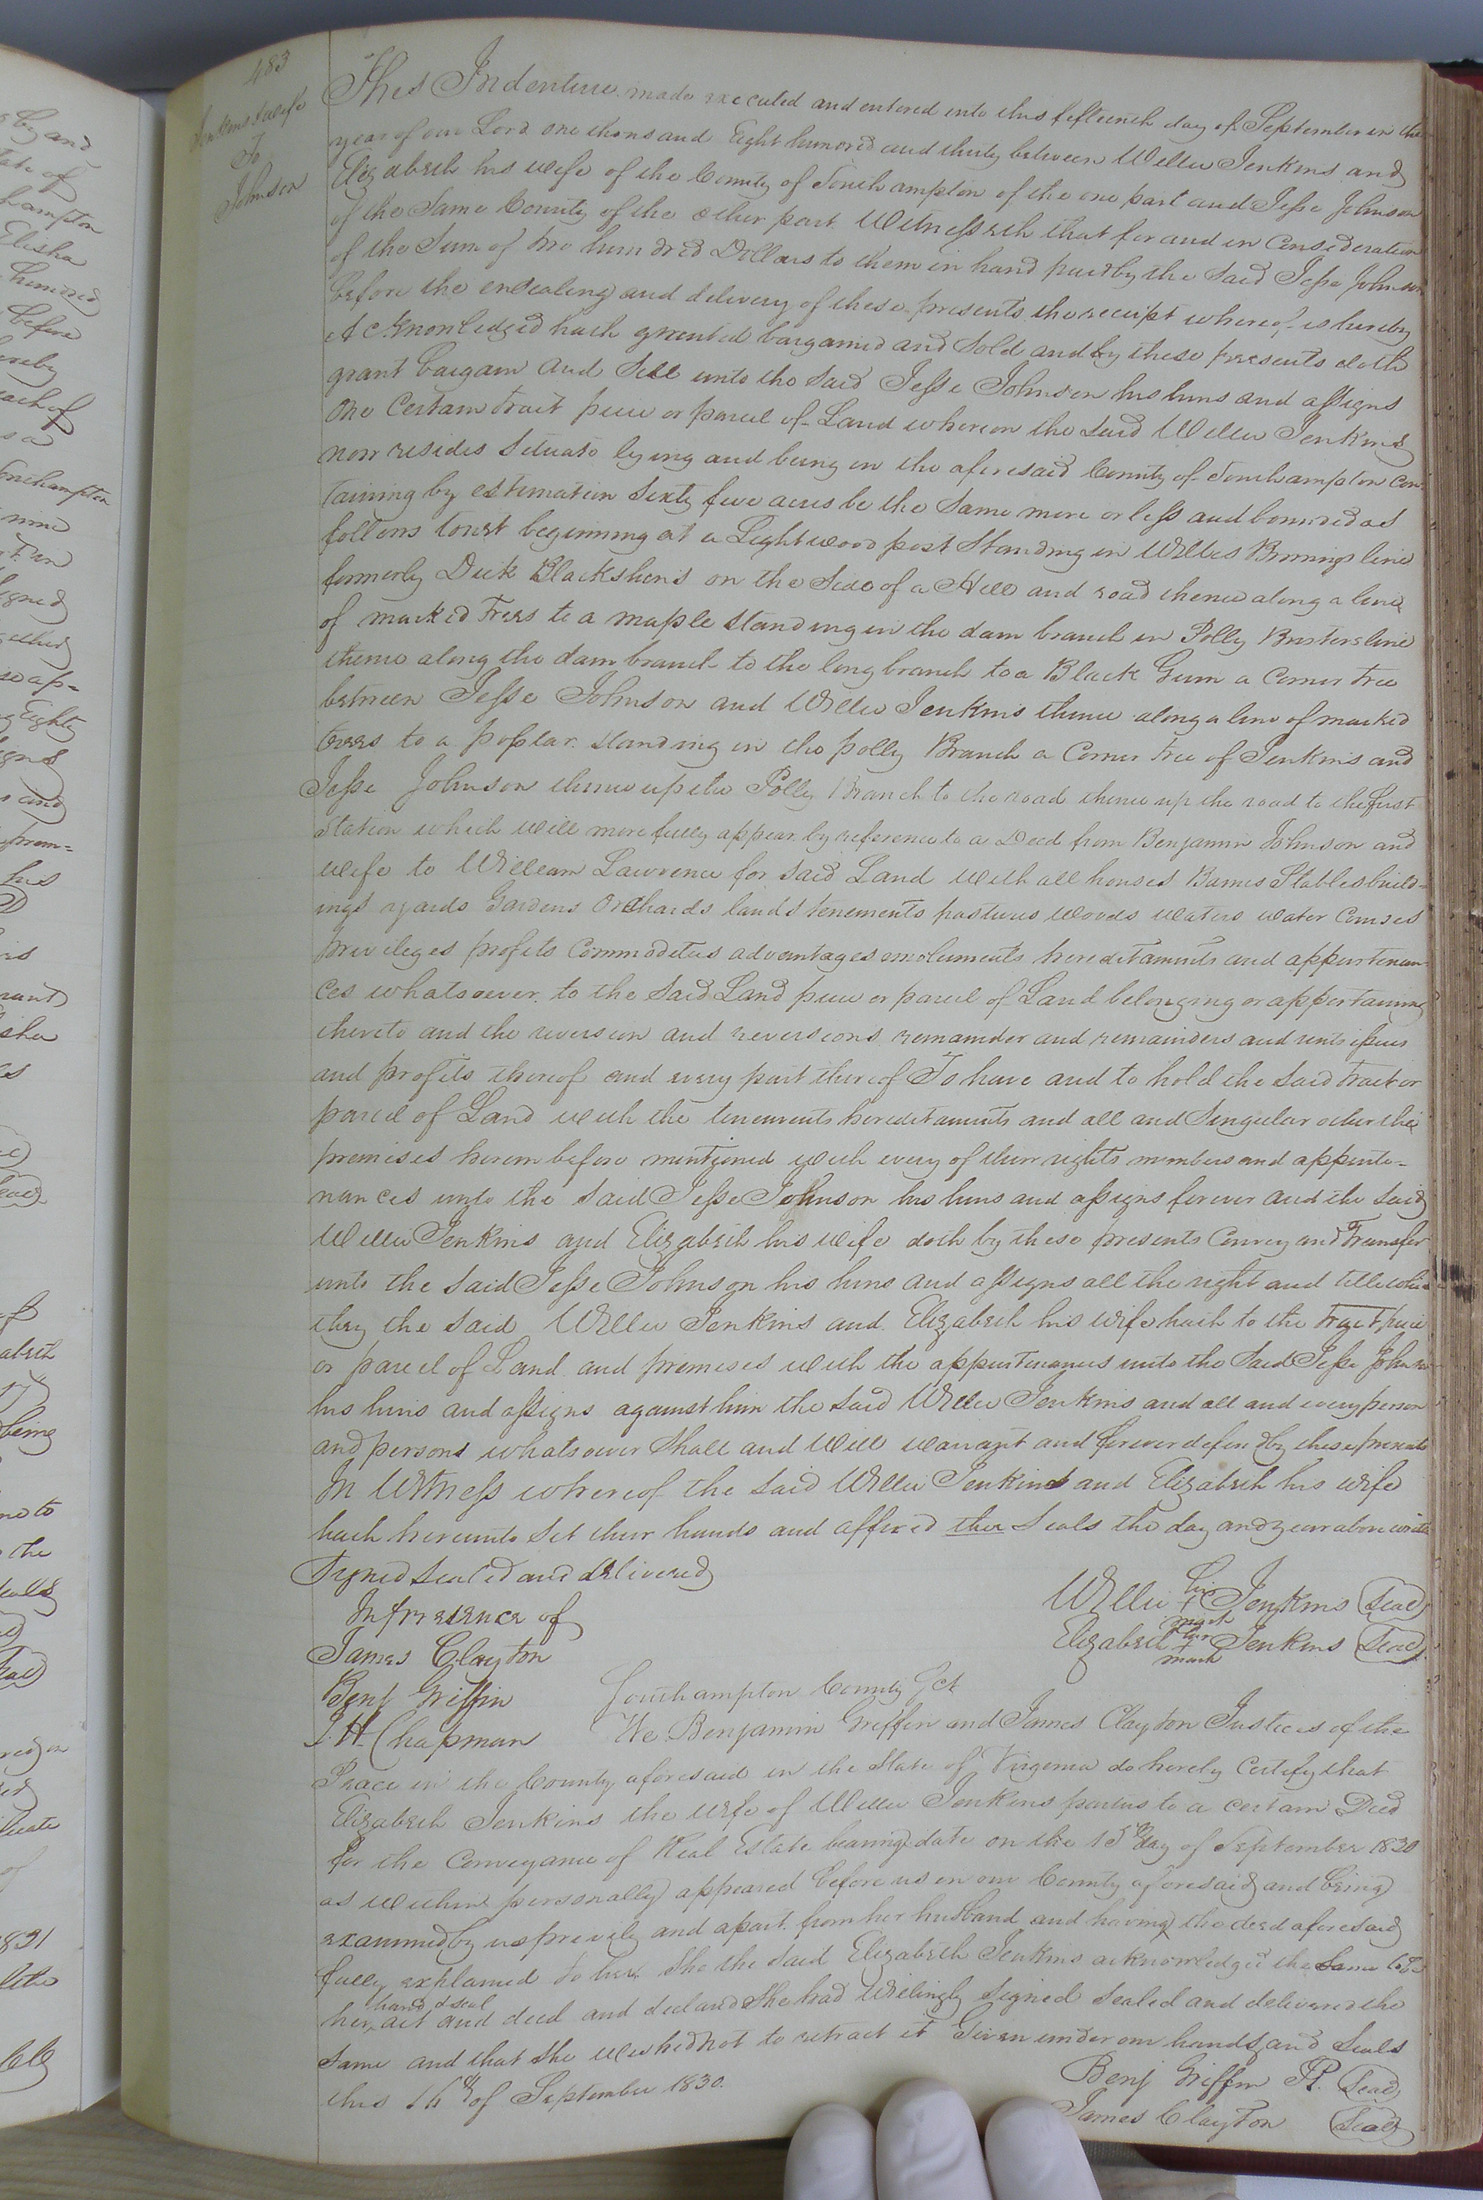 483
Jenkins & wife
To
Johnson
This Indenture made executed and entered into this fifteenth day of September in the
year of our Lord one thousand Eight hundred and thirty between Willie Jenkins and
Elizabeth his wife of the County of Southampton of the one part and Jesse Johnson
of the Same County of the other part Witnesseth that for and in Consideration
of the Sum of two hundred Dollars to them in hand paid by the Said Jesse Johnson
before the ensealing and delivery of these presents the receipt whereof is hereby
Acknowledged hath granted bargained and Sold and by these presents doth
grant bargain and Sell unto the Said Jesse Johnson his heirs and assigns
One Certain tract piece or parcel of Land whereon the Said Willie Jenkins
now resides Situate lying and being in the aforesaid County of Southampton con-
taining by estimation Sixty five acres be the Same more or less and bounded as
follows towit beginning at a Lightwood post Standing in Willies line
formerly Dick Blackshins on the Side of a Hill and road thence along a line
of marked Trees to a maple Standing in the dam branch in Polly line
thence along the dam branch to the long branch to a Black Gum a Corner tree
between Jesse Johnson and Willie Jenkins thence along a line of marked
trees to a poplar Standing in the polly Branch a Corner tree of Jenkins and
Jesse Johnson thence up the Polly Branch to the road thence up the road to the first
Station which will more fully appear by reference to a Deed from Benjamin Johnson and
wife to William Lawrence for Said Land with all houses Barnes Stables build-
ings yards Gardens Orchards lands tenements pastures woods waters water Courses
privileges profits Commodities advantages emoluments hereditaments and appurtenan-
ces whatsoever to the Said Land piece or parcel of Land belonging or appertaining
thereto and the reversion and reversions remainder and remainders and rents issues
and profits thereof and every part thereof To have and to hold the Said tract or
parcel of Land with the tenements hereditaments and all and Singular other the
premises herein before mentioned with every of their rights members and appurte-
nances unto the Said Jesse Johnson his heirs and assigns forever and the Said
Willie Jenkins and Elizabeth his wife doth by these presents Convey and Transfer
unto the Said Jesse Johnson his heirs and assigns all the right and title which
they the Said Willie Jenkins and Elizabeth his wife hath to the tract piece
or parcel of Land and premises with the appurtenances unto the Said Jesse Johnson
his heirs and assigns against him the Said Willie Jenkins and all and every person
and persons whatsoever Shall and Will warrant and forever defend by these presents
In Witness whereof the Said Willie Jenkins and Elizabeth his wife
hath hereunto Set their hands and affixed their Seals the day and year above written
Signed Sealed and delivered
In presence of
James Clayton
Benj Griffin
J. H. Chapman
his
Willie + Jenkins (Seal)
mark
her
Elizabeth + Jenkins (Seal)
mark
Southampton County Sct
We Benjamin Griffin and James Clayton Justices of the
Peace in the County aforesaid in the State of Virginia do hereby Certify that
Elizabeth Jenkins the wife of Willie Jenkins parties to a certain Deed
for the Conveyance of Real Estate bearing date on the 15th day of September 1830
as within personally appeared before us in our County aforesaid and being
examined by us privily and apart from her husband and having the deed aforesaid
fully explained to her She the Said Elizabeth Jenkins acknowledged the Same to be
hand & seal
her act and deed and declared She had Willingly Signed Sealed and delivered the
Same and that She wished not to retract it Given under our hands and Seals
this 16th of September 1830.
Benj Griffin JP. (Seal)
James Clayton (Seal)